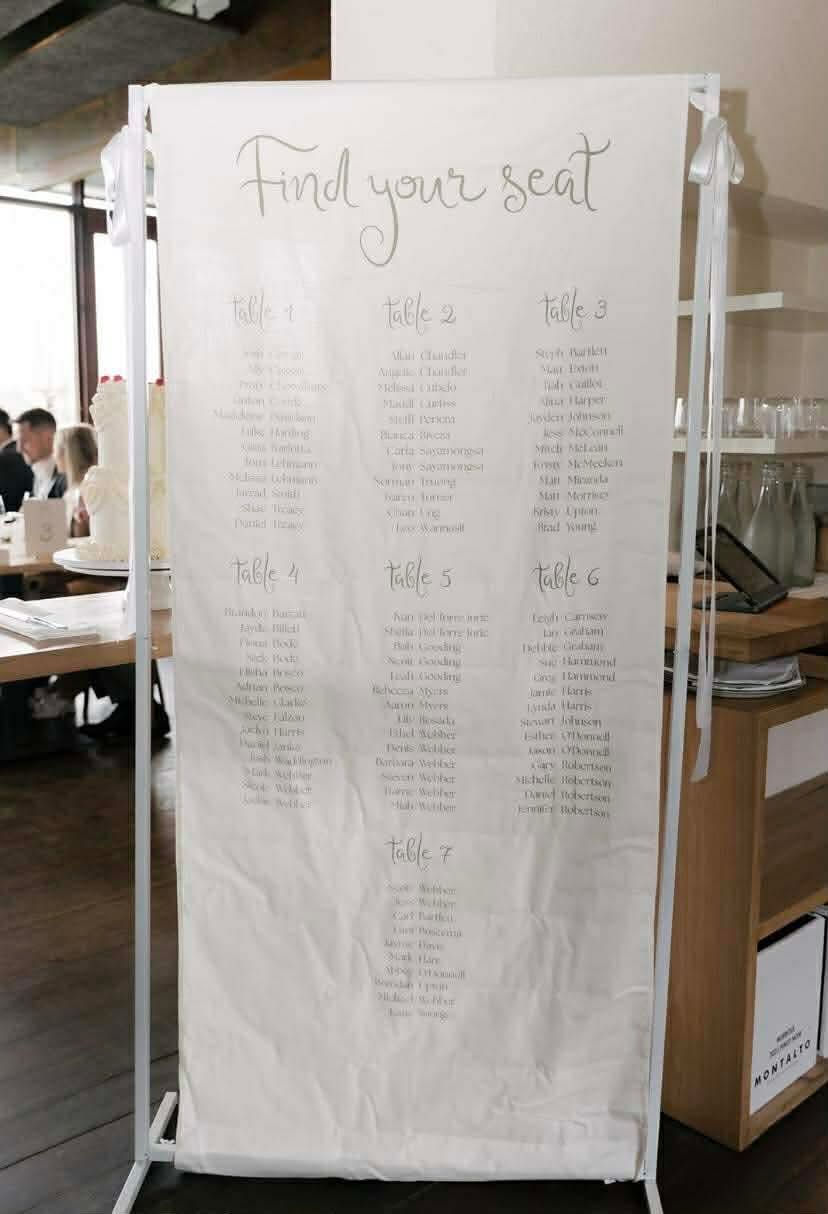 Find your seat
table 1
Chowdhury
Madeleine Danielson
Luke Harding
Tom Lehmann
Melissa Lehmann
Jarrad Smith
Shae Treacy
Daniel Treacy
table 2
Allan Chandler
Angelie Chandler
Melissa Cubelo
Maudi Curtiss
Steffi Periera
Bianca Rivera
Carla Sayamongsa
Tony Sayamongsa
Norman Truong
Karen Turner
Chian Ung
Leo Wannasit
table 3
Steph Bartlett
Matt Exton
Tiah Guillot
Alina Harper
Jayden Johnson
Jess McConnell
Mitch McLean
Kristy McMeeken
Matt Miranda
Matt Morrisey
Kristy Upton
Brad Young
table 4
Brandon Barratt
Jayde Billett
Fiona Bode
Nick Bode
Elisha Bosco
Adrian Bosco
Michelle Clarke
Steve Falzon
Jaclyn Harris
Daniel Janke
Josh Waddington
Mark Webber
Nicole Webber
Jackie Webber
table 5
Ivan Del Torre Torte
Sheila Del Torre Torte
Bob Gooding
Scott Gooding
Leah Gooding
Rebecca Myers
Aaron Myers
Lily Rosada
Ethel Webber
Denis Webber
Barbara Webber
Steven Webber
Barrie Webber
Miah Webber
table 6
Leigh Carnseu
Ian Graham
Debbie Graham
Sue Hammond
Greg Hammond
Jamie Harris
Lynda Harris
Stewart Johnson
Esther O'Donnell
Jason O'Donnell
Gary Robertson
Michelle Robertson
Daniel Robertson
Jennifer Robertson
table 7
Scott Webber
Jess Webber
Carl Bartlett
Boscema
Jayme Davis
Mark Hare
Abbey O'Donnell
Brendan Upton
Michael Webber
Katie Young
3
MONTALTO